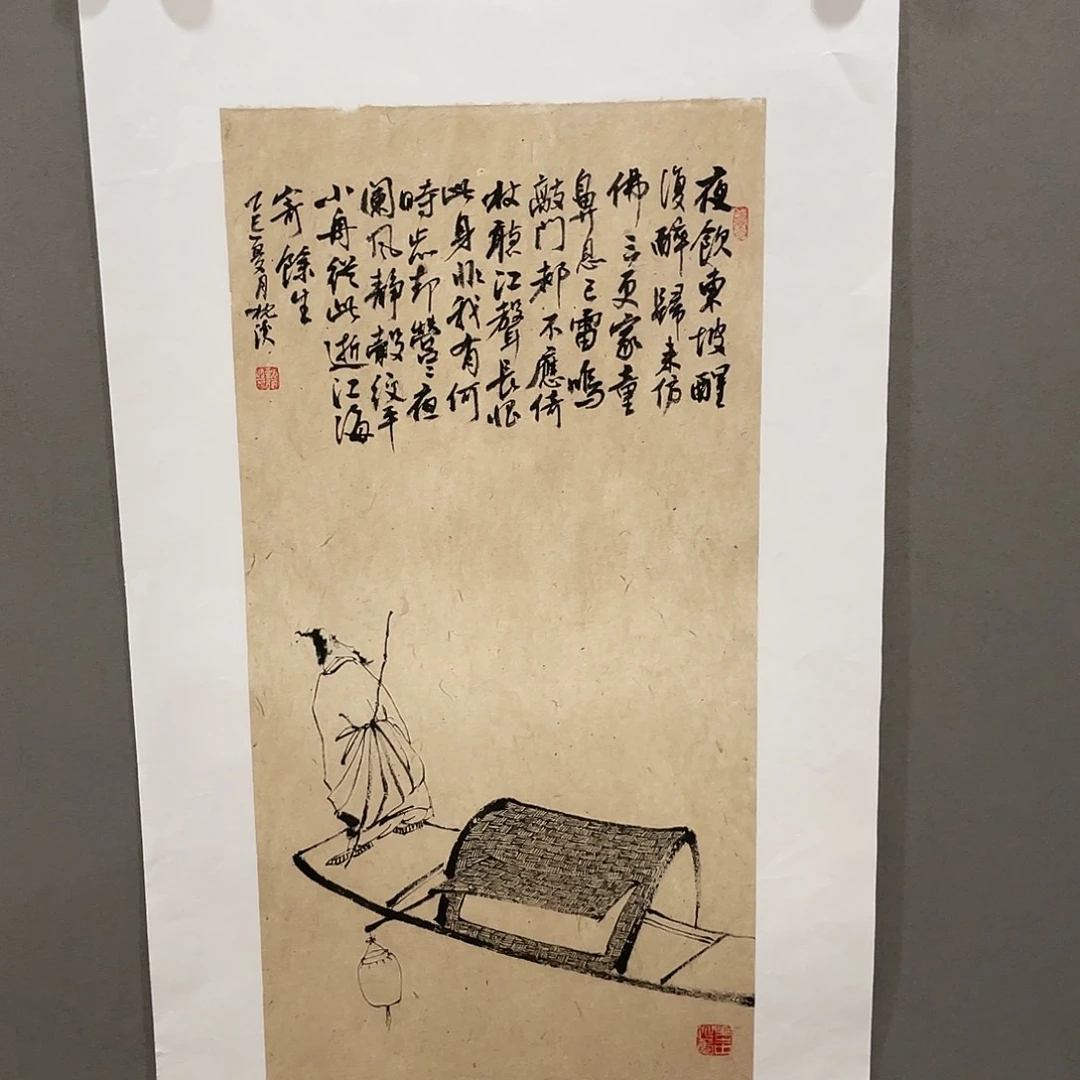 夜飲東坡醒
復醉歸來仿
佛三更家童
鼻息已雷鳴
敲門都不應倚
杖聽江聲長恨
此身非我有何
時忘却營〻夜
闌風靜縠紋平
小舟從此逝江海
寄餘生
乙巳夏月